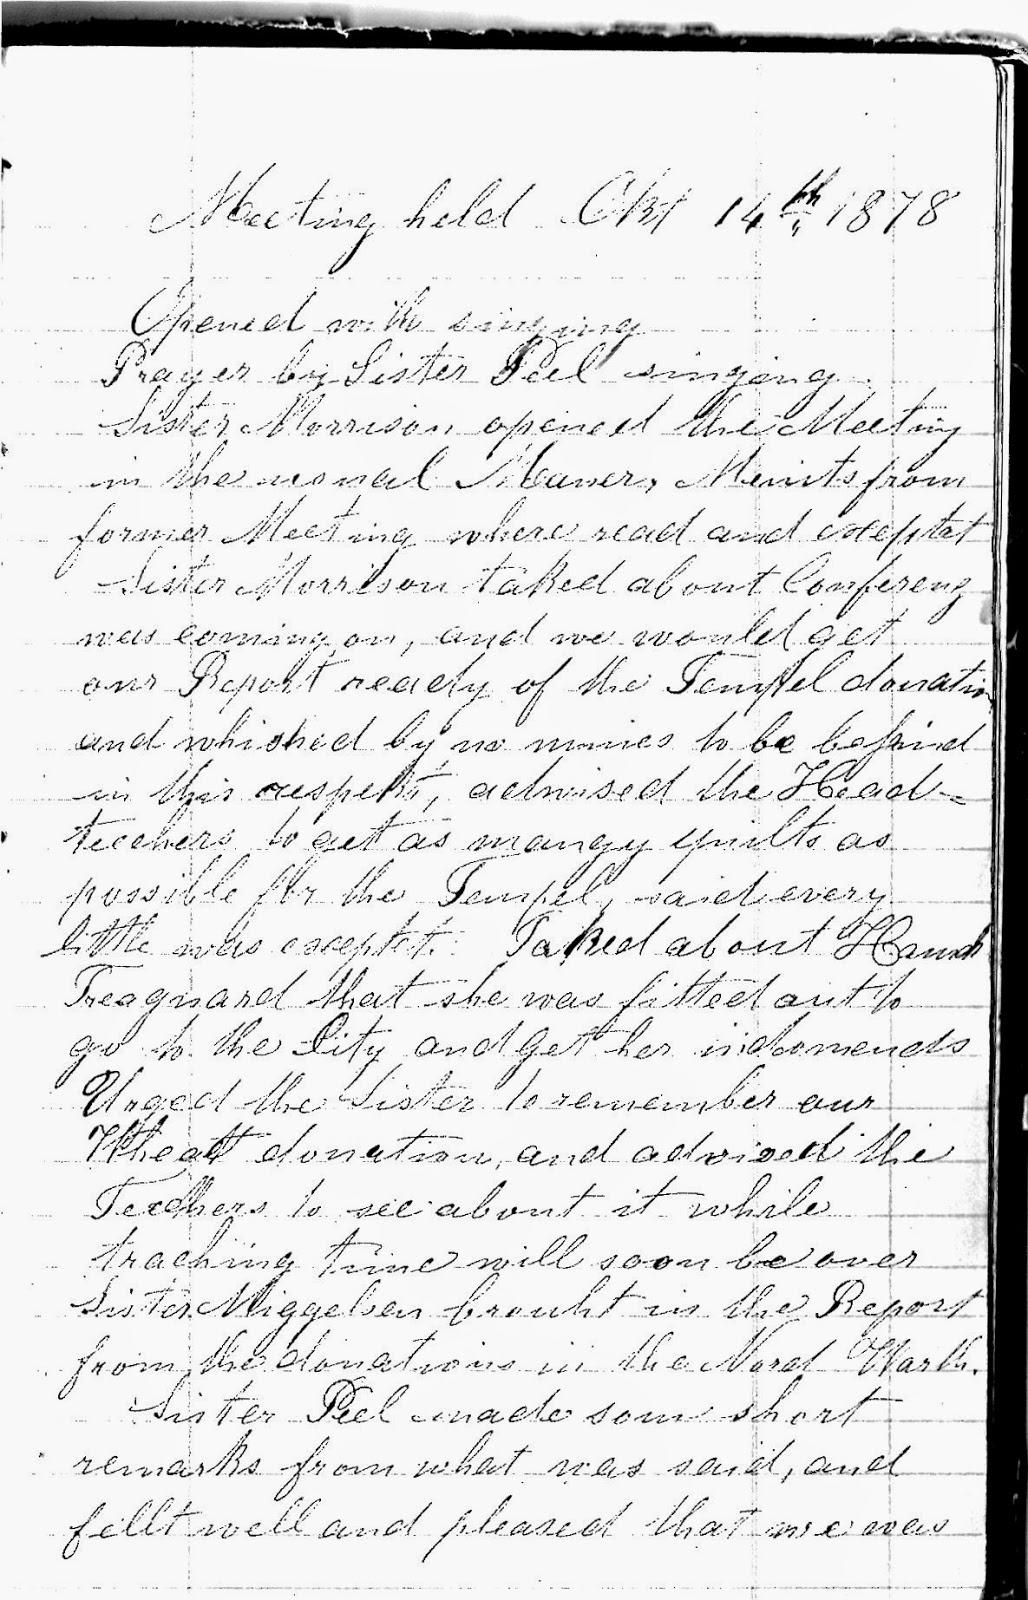 Meeting held Okt 14th 1878
Opened with singing
Prayer by Sister Peel singing
Sister Morrison opened the Meeting
in the usual Maner, Minits from
former Meeting where read and exseptet
Sister Morrison talked about Conferenz
was coming on, and we would get
our Report ready of the Tempel donation
and whished by no mines to be behind
in this respekt, adwised the Head=
teechers to get as mangy quilts as
possible for the Tempel, said every
little was exseptet. Talked about
Treagnard that she was fitted out to
go to the City and get her
Urged the Sister to remember our
Wheatt donation, and adwised the
Teechers to see about it while
traching time will soon be over
Sister Miggelsen brouht in the Report
from the donations in the Nord Warth.
Sister Peel made som short
remarks from what was said, and
fellt well and pleased that we was